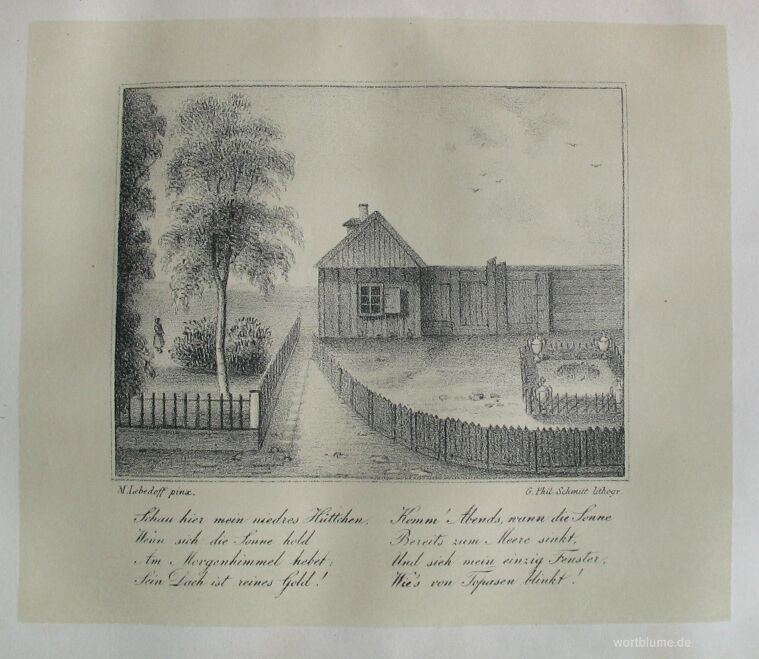 M. Lebedeff pinx.
G. Phil. Schmitt lithogr.
Schau hier mein niedres Hüttchen.
Wenn sich die Sonne hold
Am Morgenhimmel hebet;
Sein Dach ist reines Gold!
Komm' Abends, wann die Sonne
Bereits zum Meere sinkt,
Und sieh mein einzig Fenster,
Wie's von Topasen blinkt!
wortblume.de